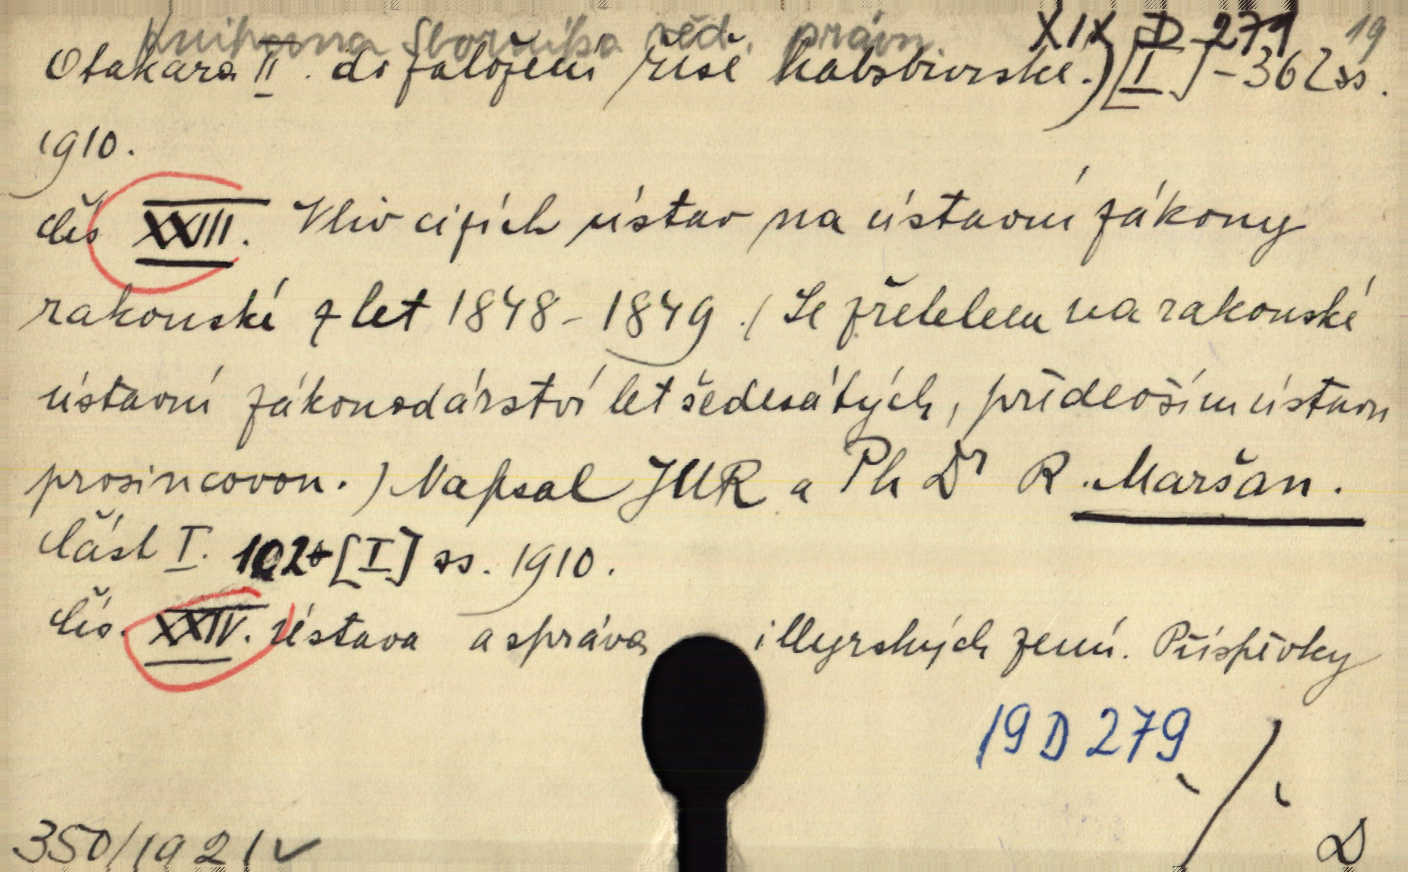 Knihovna Sborníka věd. právn. XIX D 279 19
Otakara II. do založení říše habsburské.) [I] - 362 ss.
1910.
čís XXIII. Vliv cizích ústav na ústavní zákony
rakouské z let 1848 - 1849. (Se zřetelem na rakouské
ústavní zákonodárství let šedesátých, předevšim ústavu
prosincovou.) Napsal JUR a Ph Dr R. Maršan.
Část I. 102 + [I] ss. 1910.
Čís. XXIV. Ústava a správa illyrských zemí. Příspěvky
19 D 279
350/1921 ✓
D